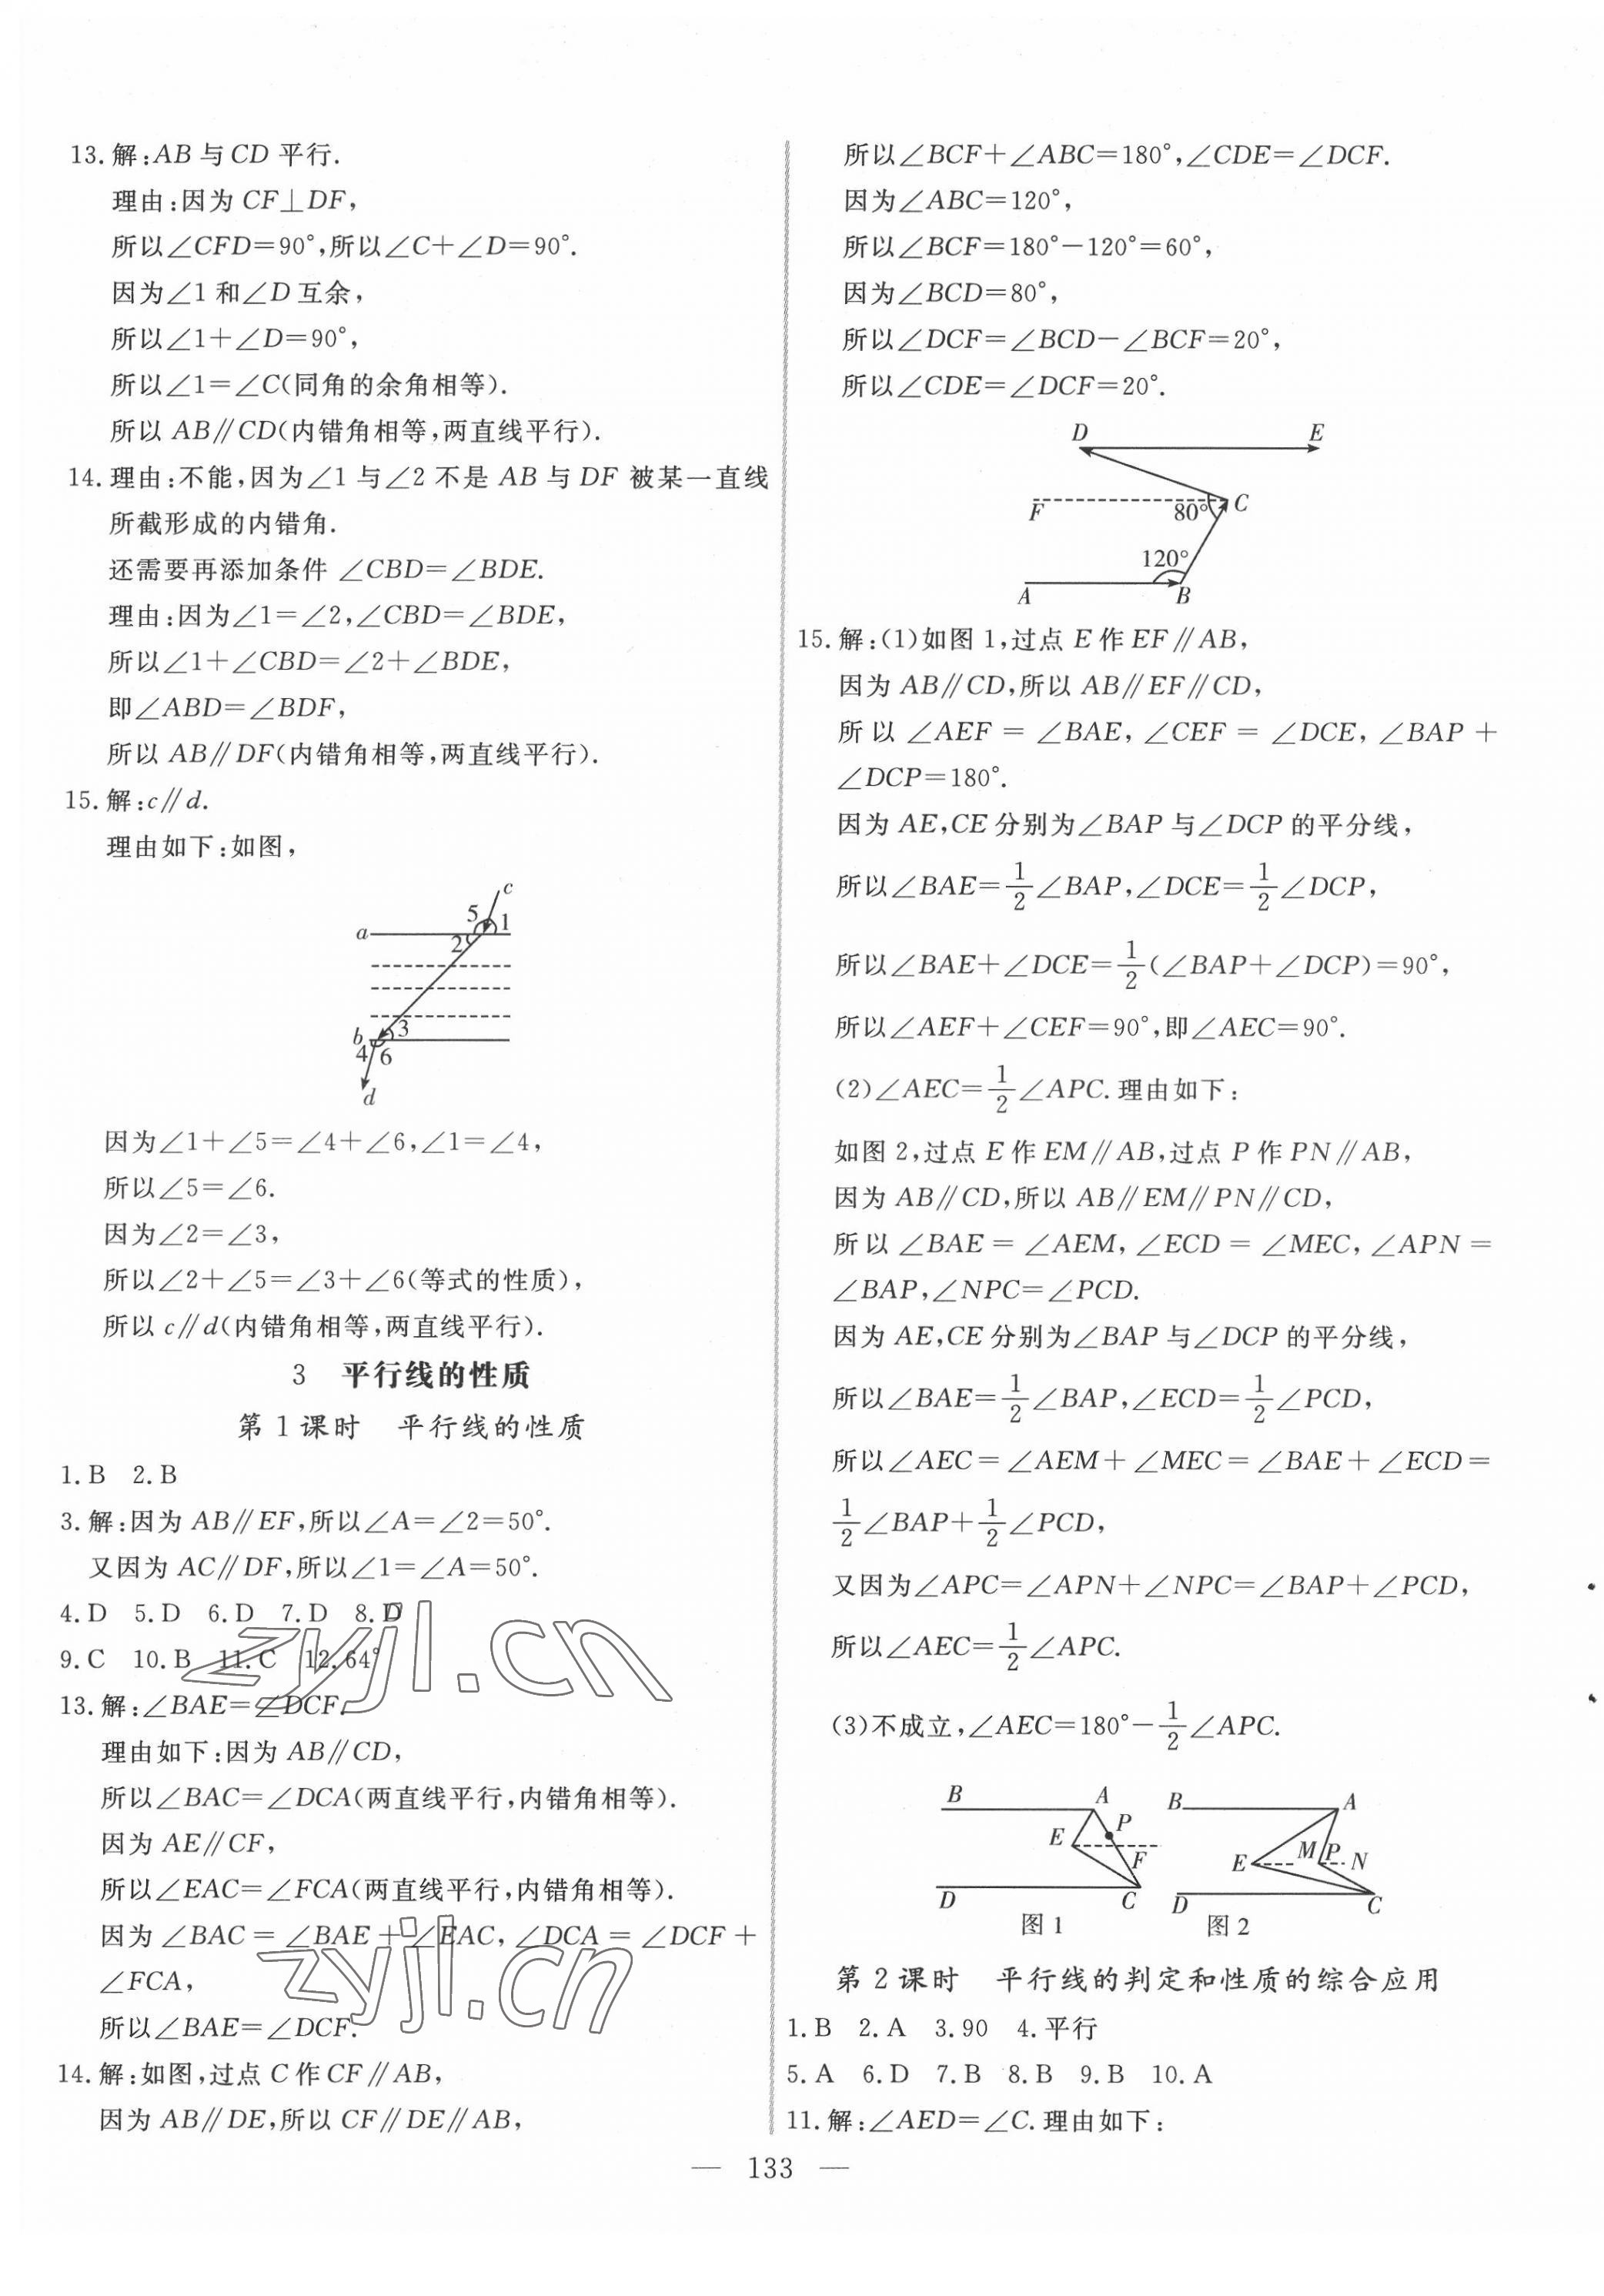 13. 解:AB 与 CD 平行.
理由:因为 CF⊥DF,
所以∠CFD=90°,所以∠C+∠D=90°.
因为∠1 和∠D 互余,
所以∠1+∠D=90°,
所以∠1=∠C(同角的余角相等).
所以 AB∥CD(内错角相等,两直线平行).
14. 理由:不能,因为∠1 与∠2 不是 AB 与 DF 被某一直线
所截形成的内错角.
还需要再添加条件 ∠CBD=∠BDE.
理由:因为∠1=∠2,∠CBD=∠BDE,
所以∠1+∠CBD=∠2+∠BDE,
即∠ABD=∠BDF,
所以 AB∥DF(内错角相等,两直线平行).
15. 解:c∥d.
理由如下:如图,
c
5
1
a
2
b
3
4
6
d
因为∠1+∠5=∠4+∠6,∠1=∠4,
所以∠5=∠6.
因为∠2=∠3,
所以∠2+∠5=∠3+∠6(等式的性质),
所以 c∥d(内错角相等,两直线平行).
3 平行线的性质
第 1 课时 平行线的性质
1. B 2. B
3. 解:因为 AB∥EF,所以∠A=∠2=50°.
又因为 AC∥DF,所以∠1=∠A=50°.
4. D 5. D 6. D 7. D 8. D
9. C 10. B 11. C 12. 64°
zyjl.cn
13. 解:∠BAE=∠DCF.
理由如下:因为 AB∥CD,
所以∠BAC=∠DCA(两直线平行,内错角相等).
因为 AE∥CF,
所以∠EAC=∠FCA(两直线平行,内错角相等).
因为 ∠BAC = ∠BAE + ∠EAC, ∠DCA = ∠DCF +
∠FCA,
zyjl.cn
所以∠BAE=∠DCF.
14. 解:如图,过点 C 作 CF∥AB,
因为 AB∥DE,所以 CF∥DE∥AB,
所以∠BCF+∠ABC=180°,∠CDE=∠DCF.
因为∠ABC=120°,
所以∠BCF=180°−120°=60°,
因为∠BCD=80°,
所以∠DCF=∠BCD−∠BCF=20°,
所以∠CDE=∠DCF=20°.
D
E
F
80°
C
120°
A
B
15. 解:(1)如图 1,过点 E 作 EF∥AB,
因为 AB∥CD,所以 AB∥EF∥CD,
所以 ∠AEF = ∠BAE, ∠CEF = ∠DCE, ∠BAP +
∠DCP=180°.
因为 AE,CE 分别为∠BAP 与∠DCP 的平分线,
所以∠BAE=1/2∠BAP,∠DCE=1/2∠DCP,
所以∠BAE+∠DCE=1/2(∠BAP+∠DCP)=90°,
所以∠AEF+∠CEF=90°,即∠AEC=90°.
(2)∠AEC=1/2∠APC. 理由如下:
如图 2,过点 E 作 EM∥AB,过点 P 作 PN∥AB,
因为 AB∥CD,所以 AB∥EM∥PN∥CD,
所以 ∠BAE = ∠AEM, ∠ECD = ∠MEC, ∠APN =
∠BAP,∠NPC=∠PCD.
因为 AE,CE 分别为∠BAP 与∠DCP 的平分线,
所以∠BAE=1/2∠BAP,∠ECD=1/2∠PCD,
所以∠AEC=∠AEM+∠MEC=∠BAE+∠ECD=
1/2∠BAP+1/2∠PCD,
又因为∠APC=∠APN+∠NPC=∠BAP+∠PCD,
所以∠AEC=1/2∠APC.
(3)不成立,∠AEC=180°−1/2∠APC.
B
A
P
E
F
D
C
图 1
B
A
E
M
P
N
D
C
图 2
第 2 课时 平行线的判定和性质的综合应用
1. B 2. A 3. 90 4. 平行
5. A 6. D 7. B 8. B 9. B 10. A
11. 解:∠AED=∠C. 理由如下:
— 133 —